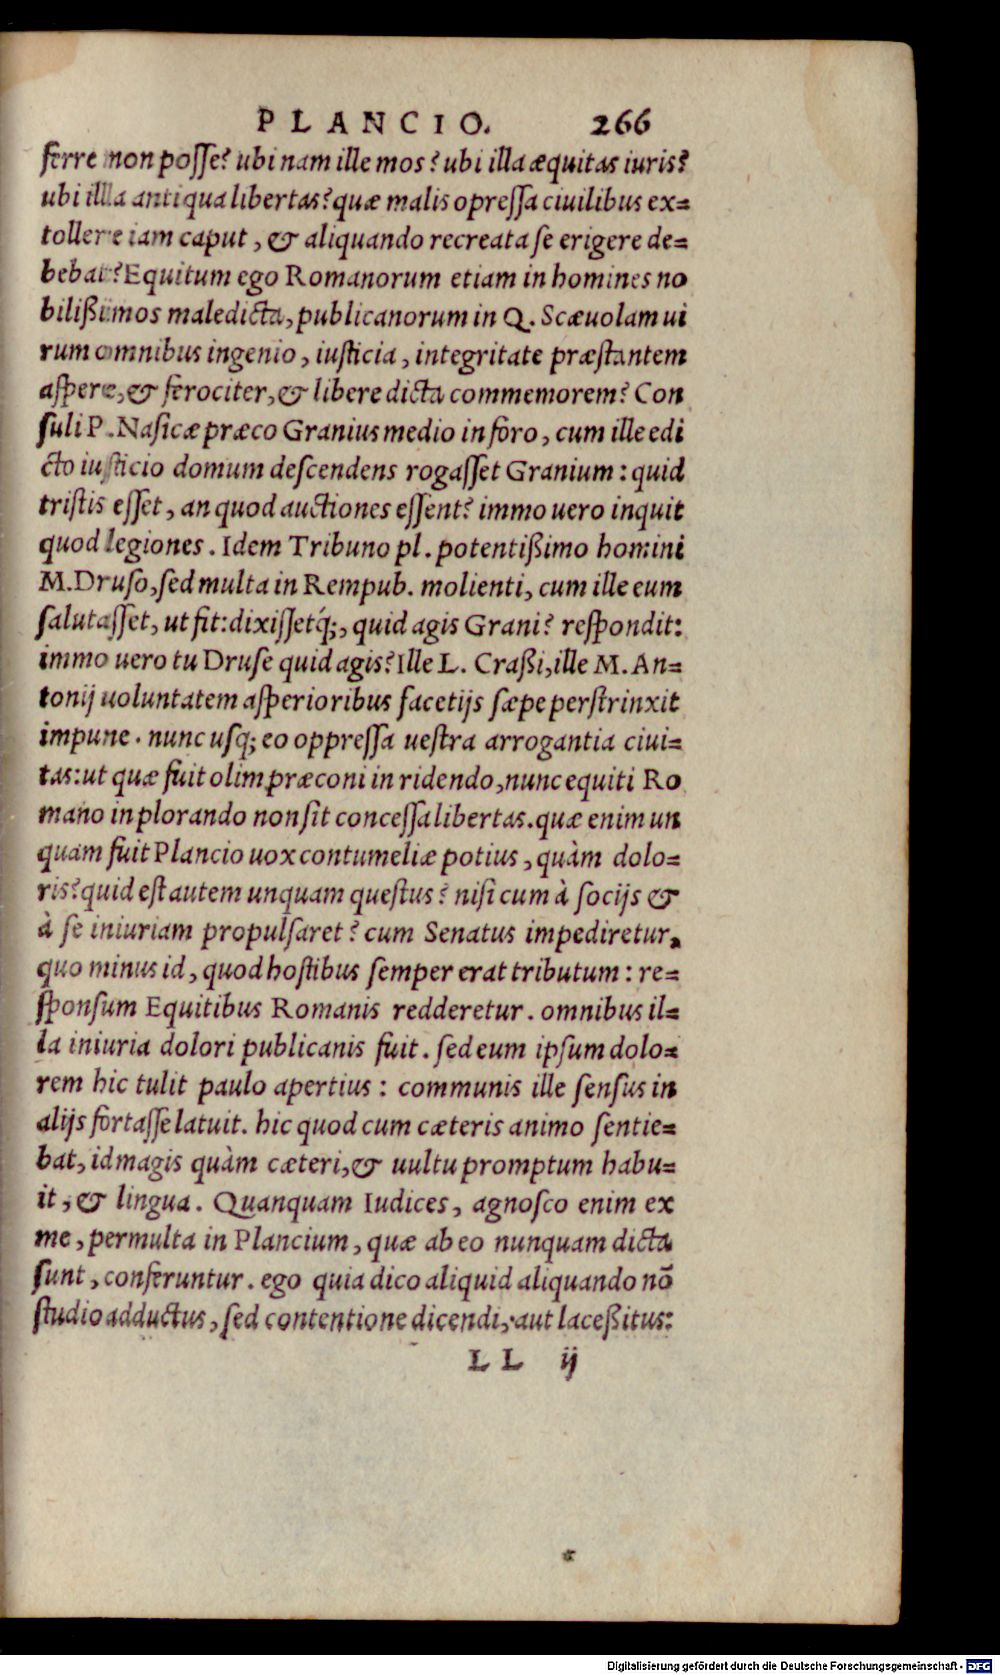 PLANCIO. 266
ferre non posse? ubi nam ille mos? ubi illa æquitas iuris?
ubi illa antiqua libertas? quæ malis opressa ciuilibus ex=
tollere iam caput, & aliquando recreata se erigere de=
bebat? Equitum ego Romanorum etiam in homines no
bilißimos maledicta, publicanorum in Q. Scæuolam ui
rum omnibus ingenio, iusticia, integritate præstantem
aspere, & ferociter, & libere dicta commemorem? Con
suli P. Nasicæ præco Granius medio in foro, cum ille edi
cto iusticio domum descendens rogasset Granium: quid
tristis esset, an quod auctiones essent? immo uero inquit
quod legiones. Idem Tribuno pl. potentißimo homini
M. Druso, sed multa in Rempub. molienti, cum ille eum
salutasset, ut fit: dixissetq́;, quid agis Grani? respondit:
immo uero tu Druse quid agis? Ille L. Craßi, ille M. An=
tonij uoluntatem asperioribus facetijs sæpe perstrinxit
impune. nunc usq; eo oppressa uestra arrogantia ciui=
tas: ut quæ fuit olim præconi in ridendo, nunc equiti Ro
mano in plorando non sit concessa libertas. quæ enim un
quam fuit Plancio uox contumeliæ potius, quàm dolo=
ris? quid est autem unquam questus? nisi cum à socijs &
à se iniuriam propulsaret? cum Senatus impediretur,
quo minus id, quod hostibus semper erat tributum: re=
sponsum Equitibus Romanis redderetur. omnibus il=
la iniuria dolori publicanis fuit. sed eum ipsum dolo=
rem hic tulit paulo apertius: communis ille sensus in
alijs fortasse latuit. hic quod cum cæteris animo sentie=
bat, id magis quàm cæteri, & uultu promptum habu=
it, & lingua. Quanquam Iudices, agnosco enim ex
me, permulta in Plancium, quæ ab eo nunquam dicta
sunt, conferuntur. ego quia dico aliquid aliquando nõ
studio adductus, sed contentione dicendi, aut laceßitus:
LL ij
Digitalisierung gefördert durch die Deutsche Forschungsgemeinschaft - DFG